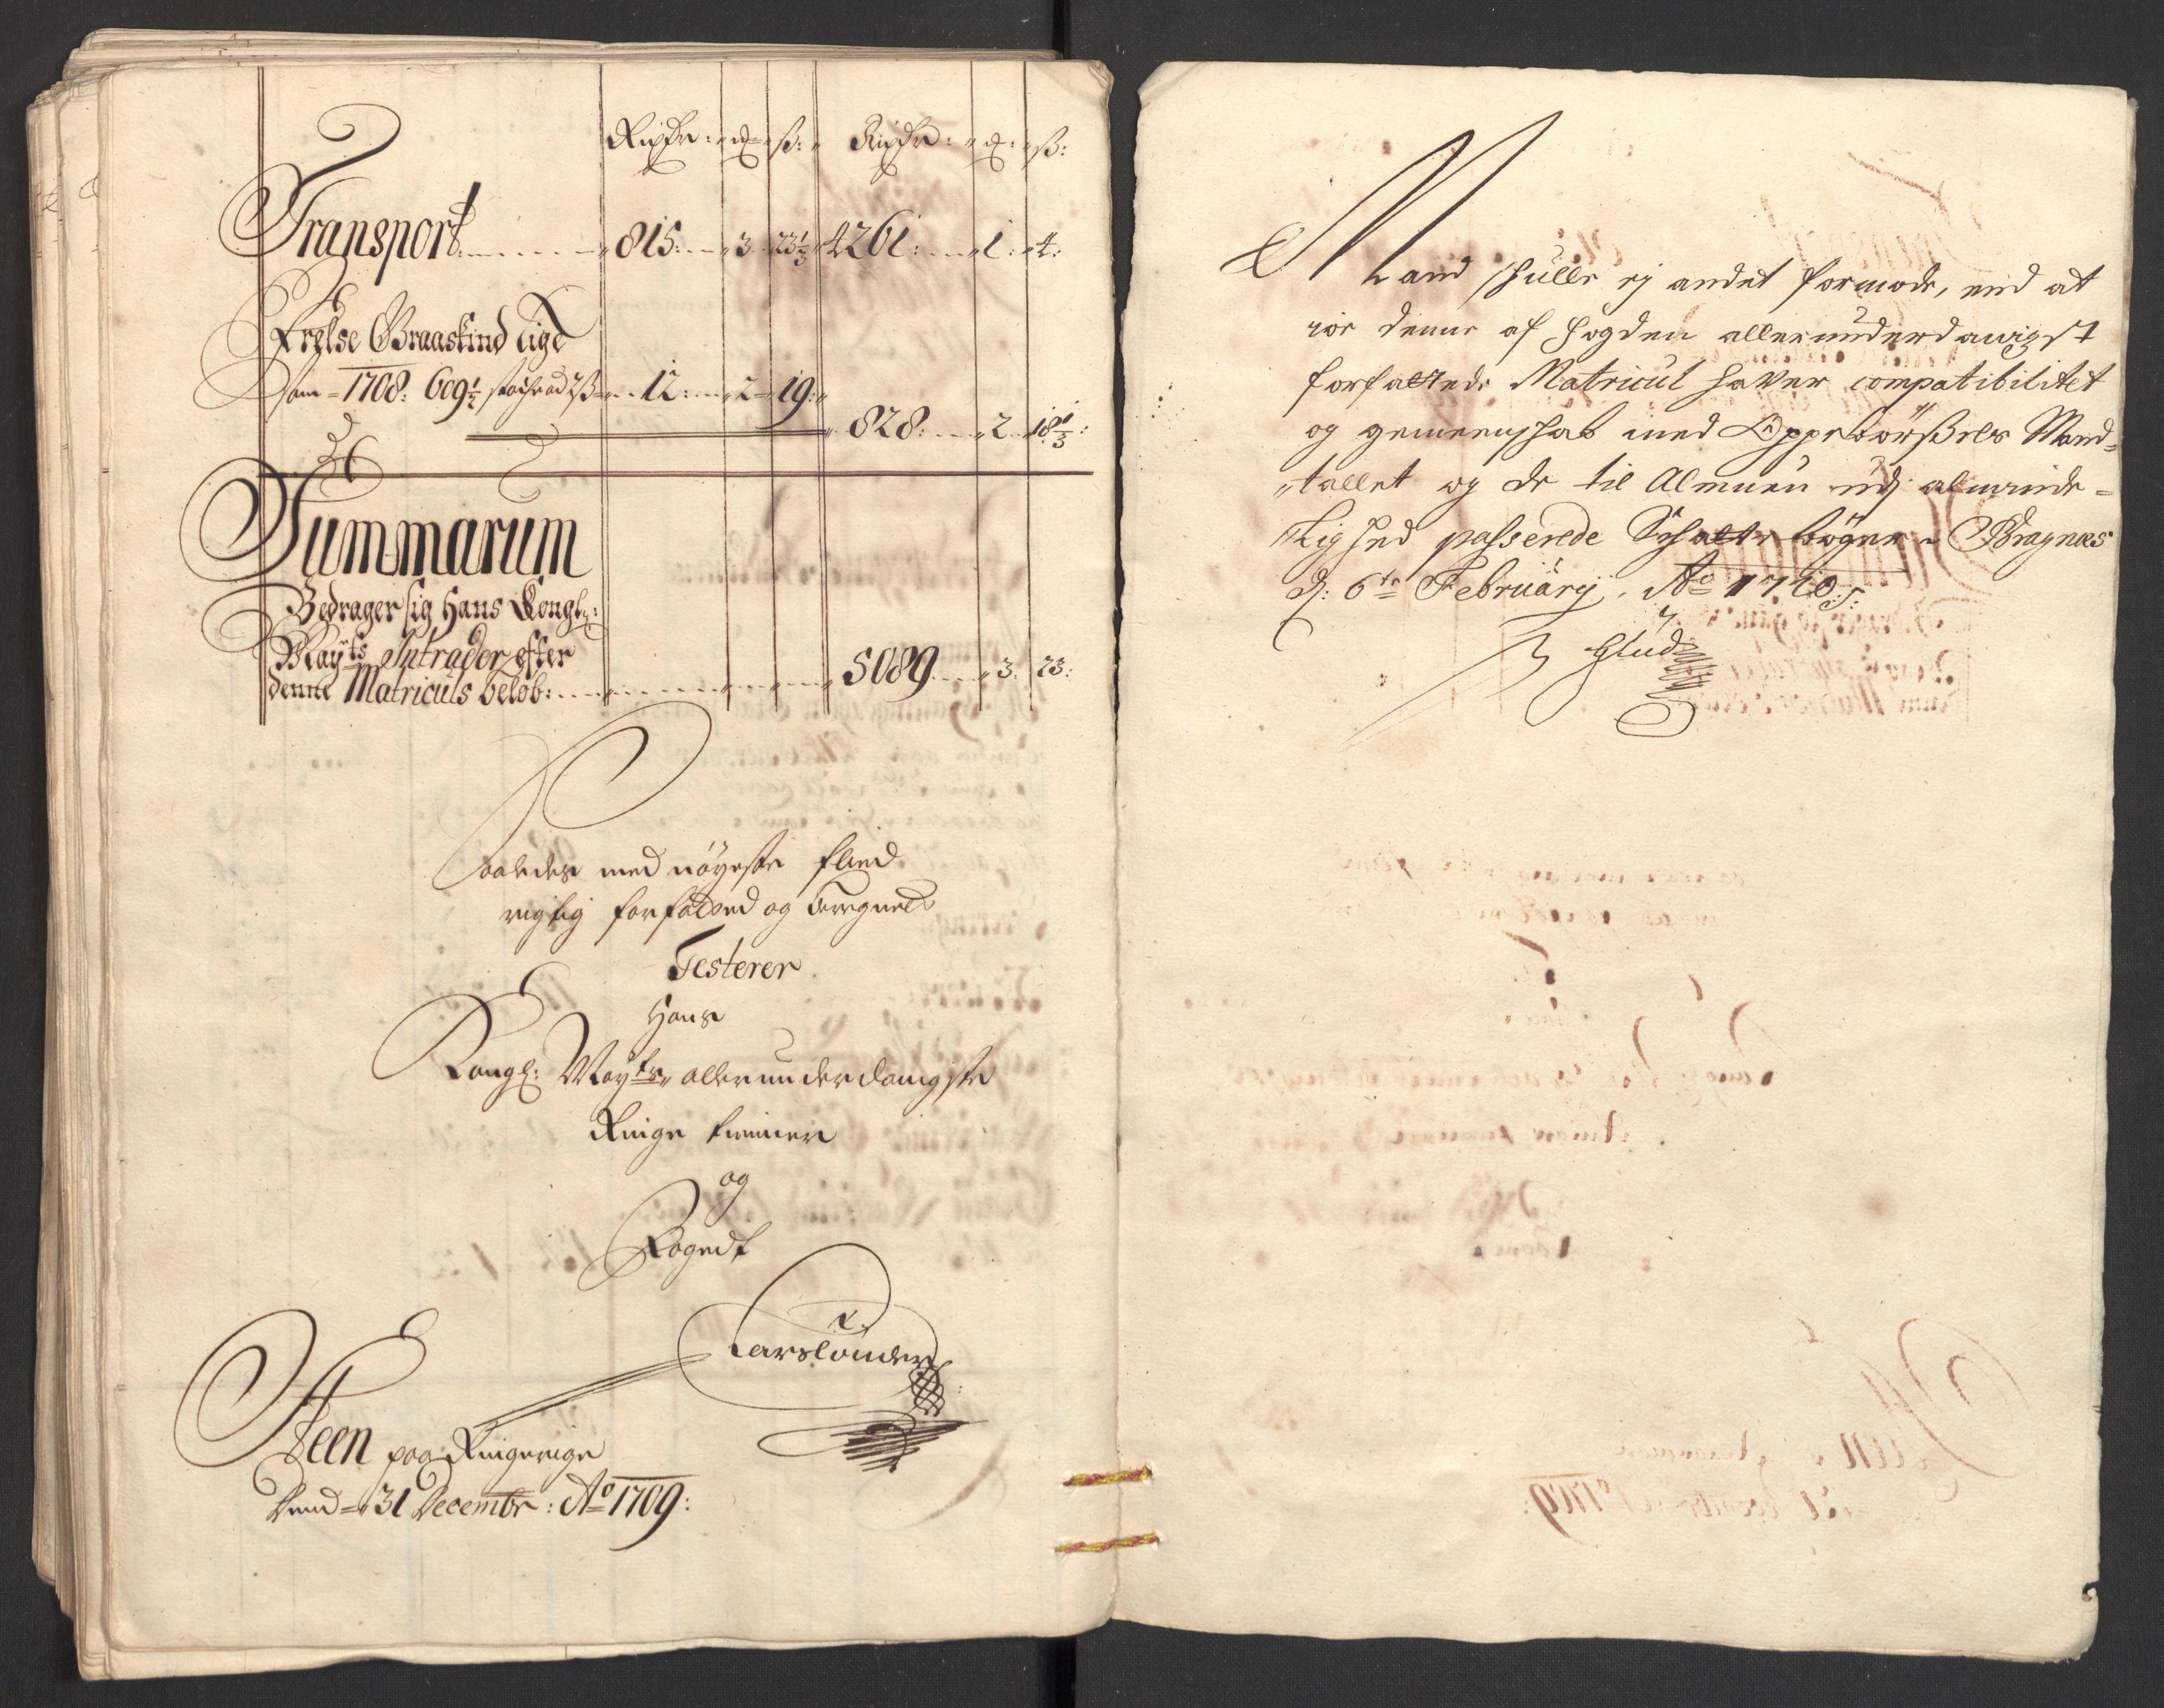 Rixdr: " ɱ " ß: " Rixdr: " ɱ: " ß:
Transport " 815: " 3 " 23 1/3 " 4261: " 1: " 4:
Frelse Graaskind Lige
som 1708: 609 1/2 á 2 ß " 12: " 2 " 19: "
" 828: " 2 " 18 1/3:
Summarum
Bedrager sig Hans Kongl:
Mayts Intrader efter
denne Matriculs beløb: " 5089 " 3: 23:
Saaledes med nöyeste flied
rigtig forfatted og beregnet
Testerer
Hans
Kongl: Mayts allerunderdanigste
Ringe tienner
og
Fogedt
Larslönder
Steen paa Ringerige
Dend 31 Decembr: Ao 1709:
Mand skulle ej andet formode, end at
jo denne af fogden allerunderdanigst
forfattede Matricul haver compatibilitet
og gemeenskab med Oppebörßels Mand-
"tallet og de til Almuen udj almindelig-
lighed passerede Schatte bøger. Bragnæs
d: 6te Februarij. Ao 1710:
Glud